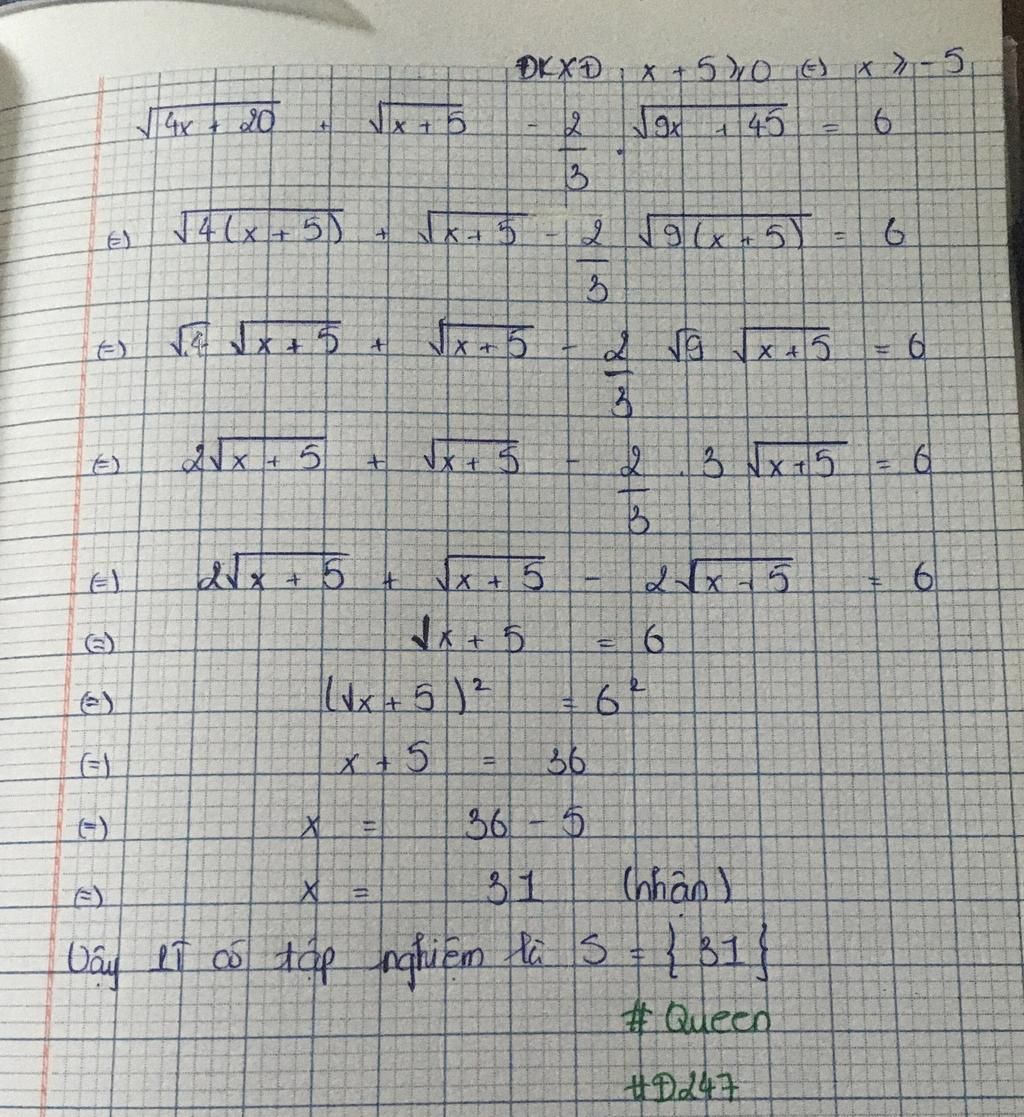 ĐKXĐ : x + 5 ⩾ 0 (=) x ⩾ -5
√(4x + 20) + √(x + 5) - 2/3 . √(9x + 45) = 6
(=) √(4(x + 5)) + √(x + 5) - 2/3 √(9(x + 5)) = 6
(=) √4 √(x + 5) + √(x + 5) - 2/3 √9 √(x + 5) = 6
(=) 2√(x + 5) + √(x + 5) - 2/3 . 3 √(x + 5) = 6
(=) 2√(x + 5) + √(x + 5) - 2√(x + 5) = 6
(=) √x + 5 = 6
(=) (√x + 5)² = 6²
(=) x + 5 = 36
(=) x = 36 - 5
(=) x = 31 (nhận)
Vậy PT có tập nghiệm là S = {31}
# Queen
#D247